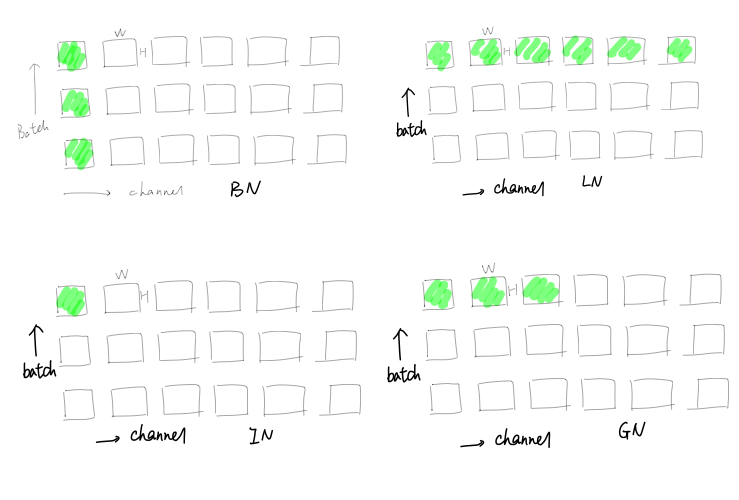 W
H
Batch
channel BN
W
H
batch
channel LN
W
H
batch
channel IN
W
H
batch
channel GN